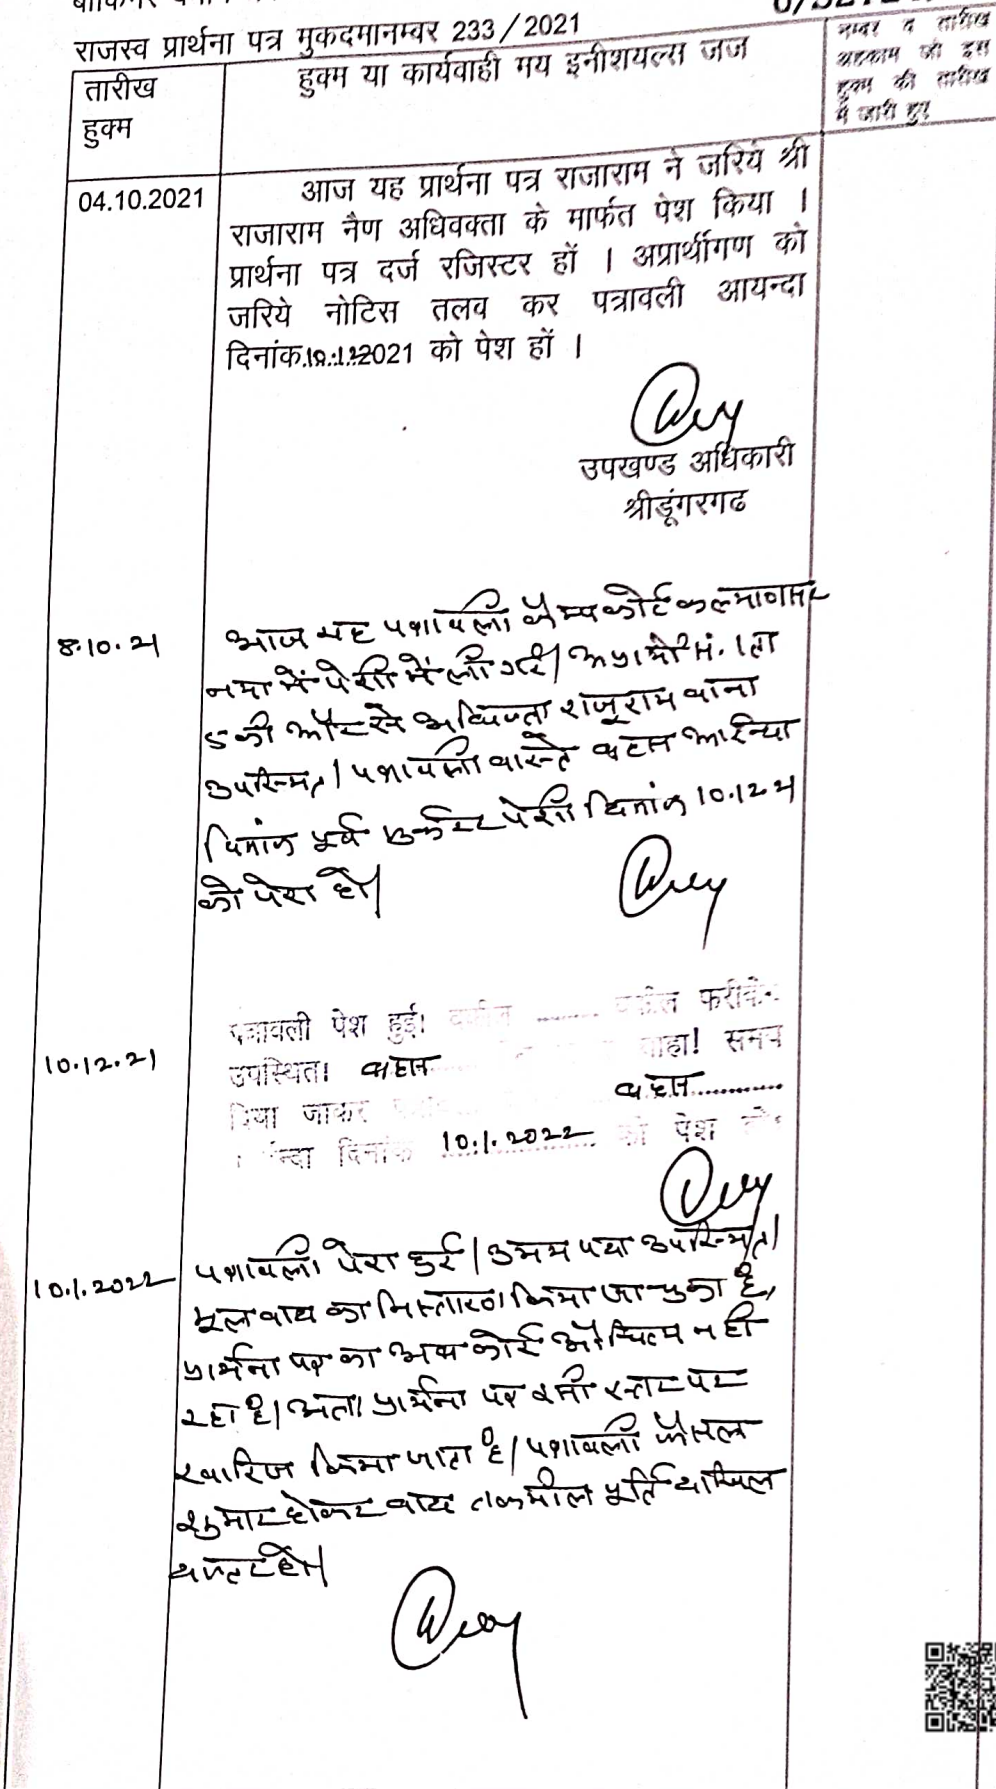 राजस्व प्रार्थना पत्र मुकदमानम्वर 233/2021
तारीख
हुक्म
हुक्म या कार्यवाही मय इनीशयल्स जज
नम्बर व तारीख
अहकाम जो इस
हुक्म की तारीख
में जारी हुए
04.10.2021
आज यह प्रार्थना पत्र राजाराम ने जरिये श्री
राजाराम नैण अधिवक्ता के मार्फत पेश किया ।
प्रार्थना पत्र दर्ज रजिस्टर हों । अप्रार्थीगण को
जरिये नोटिस तलव कर पत्रावली आयन्दा
दिनांक 10.12.2021 को पेश हों ।
उपखण्ड अधिकारी
श्रीडूंगरगढ
8.10.21
आज यह पत्रावली कैम्प कोर्ट कल्याणसर
नया में पेशी में ली गई। अप्रार्थी सं. 1 ता
5 की और से अधिवक्ता राजूराम बाना
उपस्थित। पत्रावली वास्ते बहस आइन्दा
दिनांक पूर्व मुकर्रर पेशी दिनांक 10.12.21
को पेश हो।
10.12.21
पत्रावली पेश हुई। वकील ......... वकील फरीकेन
उपस्थित। बहस चाहा! समय
दिया जाकर बहस............
दिनांक 10.1.2022 को पेश हो
10.1.2022
पत्रावली पेश हुई। उभय पक्ष उपस्थित।
मूल वाद का निस्तारण किया जा चुका है,
प्रार्थना पत्र का अब कोई औचित्य नही
रहा है। अतः प्रार्थना पत्र इसी स्तर पर
खारिज किया जाता है। पत्रावली फैसल
शुमार होकर बाद तकमील पूर्ति दाखिल
दफ्तर हो।